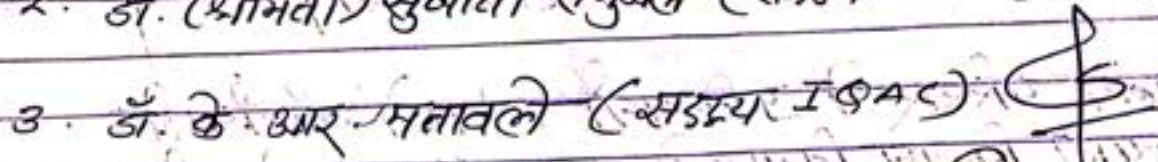 २. डॉ. (श्रीमती)
3. डॉ. के. आर. मतावले (सदस्य IQAC)